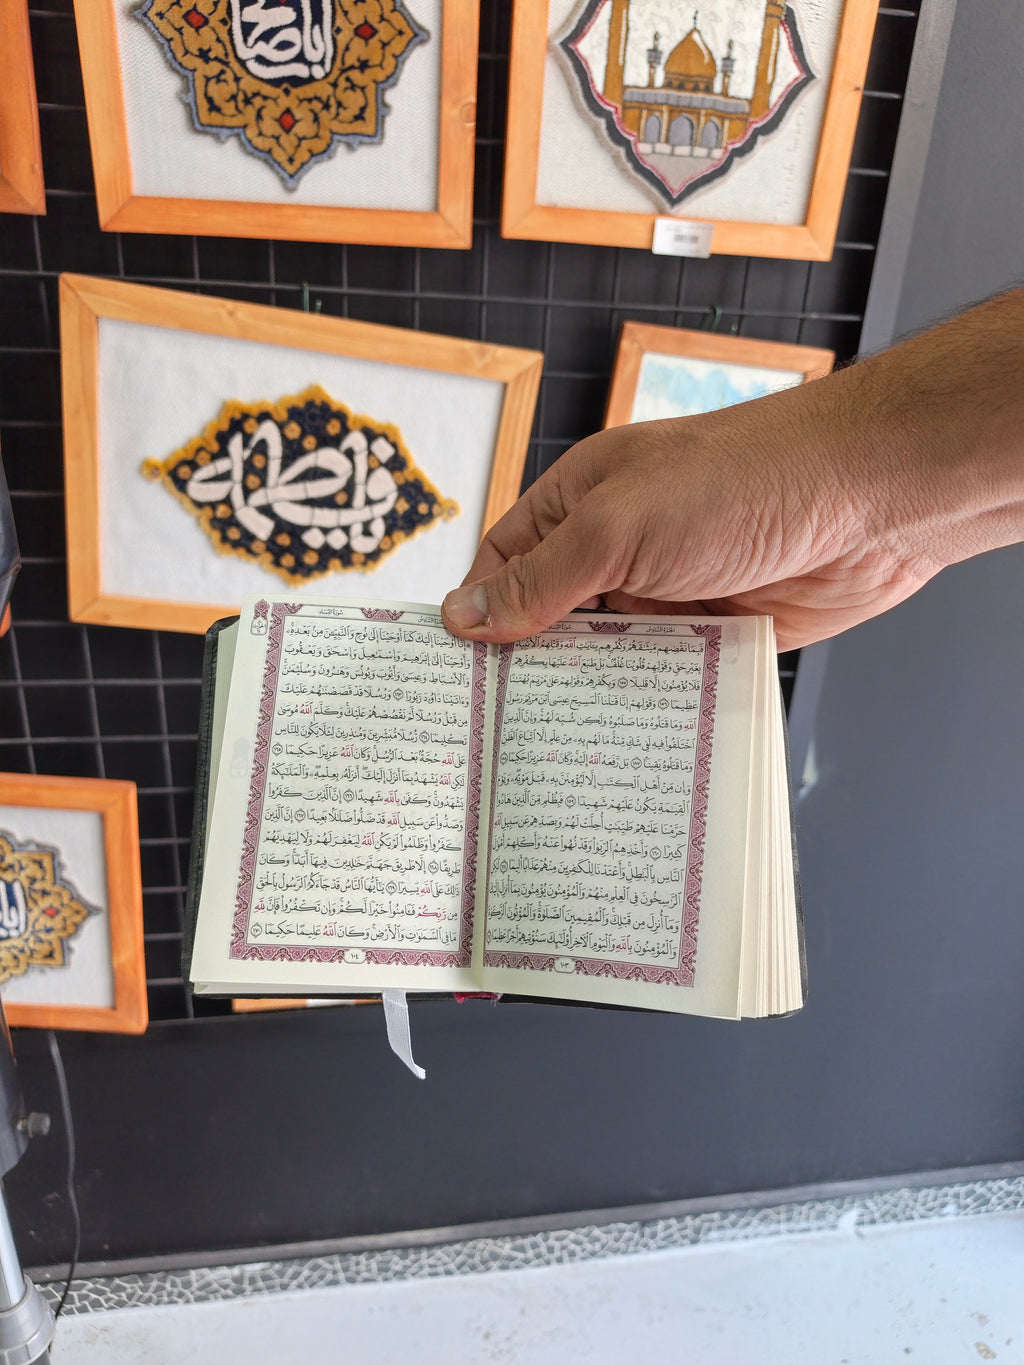 فاطمة
الجزء السادس
سورة النساء
فَبِمَا نَقْضِهِم مِّيثَٰقَهُمْ وَكُفْرِهِم بِـَٔايَٰتِ ٱللَّهِ وَقَتْلِهِمُ ٱلْأَنۢبِيَآءَ
بِغَيْرِ حَقٍّ وَقَوْلِهِمْ قُلُوبُنَا غُلْفٌۢ بَلْ طَبَعَ ٱللَّهُ عَلَيْهَا بِكُفْرِهِمْ
فَلَا يُؤْمِنُونَ إِلَّا قَلِيلًا ١٥٥ وَبِكُفْرِهِمْ وَقَوْلِهِمْ عَلَىٰ مَرْيَمَ بُهْتَٰنًا
عَظِيمًا ١٥٦ وَقَوْلِهِمْ إِنَّا قَتَلْنَا ٱلْمَسِيحَ عِيسَى ٱبْنَ مَرْيَمَ رَسُولَ
ٱللَّهِ وَمَا قَتَلُوهُ وَمَا صَلَبُوهُ وَلَٰكِن شُبِّهَ لَهُمْ وَإِنَّ ٱلَّذِينَ
ٱخْتَلَفُوا۟ فِيهِ لَفِى شَكٍّ مِّنْهُ مَا لَهُم بِهِۦ مِنْ عِلْمٍ إِلَّا ٱتِّبَاعَ ٱلظَّنِّ
وَمَا قَتَلُوهُ يَقِينًۢا ١٥٧ بَل رَّفَعَهُ ٱللَّهُ إِلَيْهِ وَكَانَ ٱللَّهُ عَزِيزًا حَكِيمًا ١٥٨
وَإِن مِّنْ أَهْلِ ٱلْكِتَٰبِ إِلَّا لَيُؤْمِنَنَّ بِهِۦ قَبْلَ مَوْتِهِۦ وَيَوْمَ
ٱلْقِيَٰمَةِ يَكُونُ عَلَيْهِمْ شَهِيدًا ١٥٩ فَبِظُلْمٍ مِّنَ ٱلَّذِينَ هَادُوا۟
حَرَّمْنَا عَلَيْهِمْ طَيِّبَٰتٍ أُحِلَّتْ لَهُمْ وَبِصَدِّهِمْ عَن سَبِيلِ ٱللَّهِ
كَثِيرًا ١٦٠ وَأَخْذِهِمُ ٱلرِّبَوٰا۟ وَقَدْ نُهُوا۟ عَنْهُ وَأَكْلِهِمْ أَمْوَٰلَ
ٱلنَّاسِ بِٱلْبَٰطِلِ وَأَعْتَدْنَا لِلْكَٰفِرِينَ مِنْهُمْ عَذَابًا أَلِيمًا ١٦١ لَّٰكِنِ
ٱلرَّٰسِخُونَ فِى ٱلْعِلْمِ مِنْهُمْ وَٱلْمُؤْمِنُونَ يُؤْمِنُونَ بِمَآ أُنزِلَ إِلَيْكَ
وَمَآ أُنزِلَ مِن قَبْلِكَ وَٱلْمُقِيمِينَ ٱلصَّلَوٰةَ وَٱلْمُؤْتُونَ ٱلزَّكَوٰةَ
وَٱلْمُؤْمِنُونَ بِٱللَّهِ وَٱلْيَوْمِ ٱلْـَٔاخِرِ أُو۟لَٰٓئِكَ سَنُؤْتِيهِمْ أَجْرًا عَظِيمًا ١٦٢
١٠٣
الجزء السادس
سورة النساء
۞ إِنَّآ أَوْحَيْنَآ إِلَيْكَ كَمَآ أَوْحَيْنَآ إِلَىٰ نُوحٍ وَٱلنَّبِيِّـۧنَ مِنۢ بَعْدِهِۦ
وَأَوْحَيْنَآ إِلَىٰٓ إِبْرَٰهِيمَ وَإِسْمَٰعِيلَ وَإِسْحَٰقَ وَيَعْقُوبَ
وَٱلْأَسْبَاطِ وَعِيسَىٰ وَأَيُّوبَ وَيُونُسَ وَهَٰرُونَ وَسُلَيْمَٰنَ
وَءَاتَيْنَا دَاوُۥدَ زَبُورًا ١٦٣ وَرُسُلًا قَدْ قَصَصْنَٰهُمْ عَلَيْكَ
مِن قَبْلُ وَرُسُلًا لَّمْ نَقْصُصْهُمْ عَلَيْكَ وَكَلَّمَ ٱللَّهُ مُوسَىٰ
تَكْلِيمًا ١٦٤ رُّسُلًا مُّبَشِّرِينَ وَمُنذِرِينَ لِئَلَّا يَكُونَ لِلنَّاسِ
عَلَى ٱللَّهِ حُجَّةٌۢ بَعْدَ ٱلرُّسُلِ وَكَانَ ٱللَّهُ عَزِيزًا حَكِيمًا ١٦٥
لَّٰكِنِ ٱللَّهُ يَشْهَدُ بِمَآ أَنزَلَ إِلَيْكَ أَنزَلَهُۥ بِعِلْمِهِۦ وَٱلْمَلَٰٓئِكَةُ
يَشْهَدُونَ وَكَفَىٰ بِٱللَّهِ شَهِيدًا ١٦٦ إِنَّ ٱلَّذِينَ كَفَرُوا۟
وَصَدُّوا۟ عَن سَبِيلِ ٱللَّهِ قَدْ ضَلُّوا۟ ضَلَٰلًۢا بَعِيدًا ١٦٧ إِنَّ ٱلَّذِينَ
كَفَرُوا۟ وَظَلَمُوا۟ لَمْ يَكُنِ ٱللَّهُ لِيَغْفِرَ لَهُمْ وَلَا لِيَهْدِيَهُمْ
طَرِيقًا ١٦٨ إِلَّا طَرِيقَ جَهَنَّمَ خَٰلِدِينَ فِيهَآ أَبَدًا وَكَانَ
ذَٰلِكَ عَلَى ٱللَّهِ يَسِيرًا ١٦٩ يَٰٓأَيُّهَا ٱلنَّاسُ قَدْ جَآءَكُمُ ٱلرَّسُولُ بِٱلْحَقِّ
مِن رَّبِّكُمْ فَـَٔامِنُوا۟ خَيْرًا لَّكُمْ وَإِن تَكْفُرُوا۟ فَإِنَّ لِلَّهِ
مَا فِى ٱلسَّمَٰوَٰتِ وَٱلْأَرْضِ وَكَانَ ٱللَّهُ عَلِيمًا حَكِيمًا ١٧٠
١٠٤